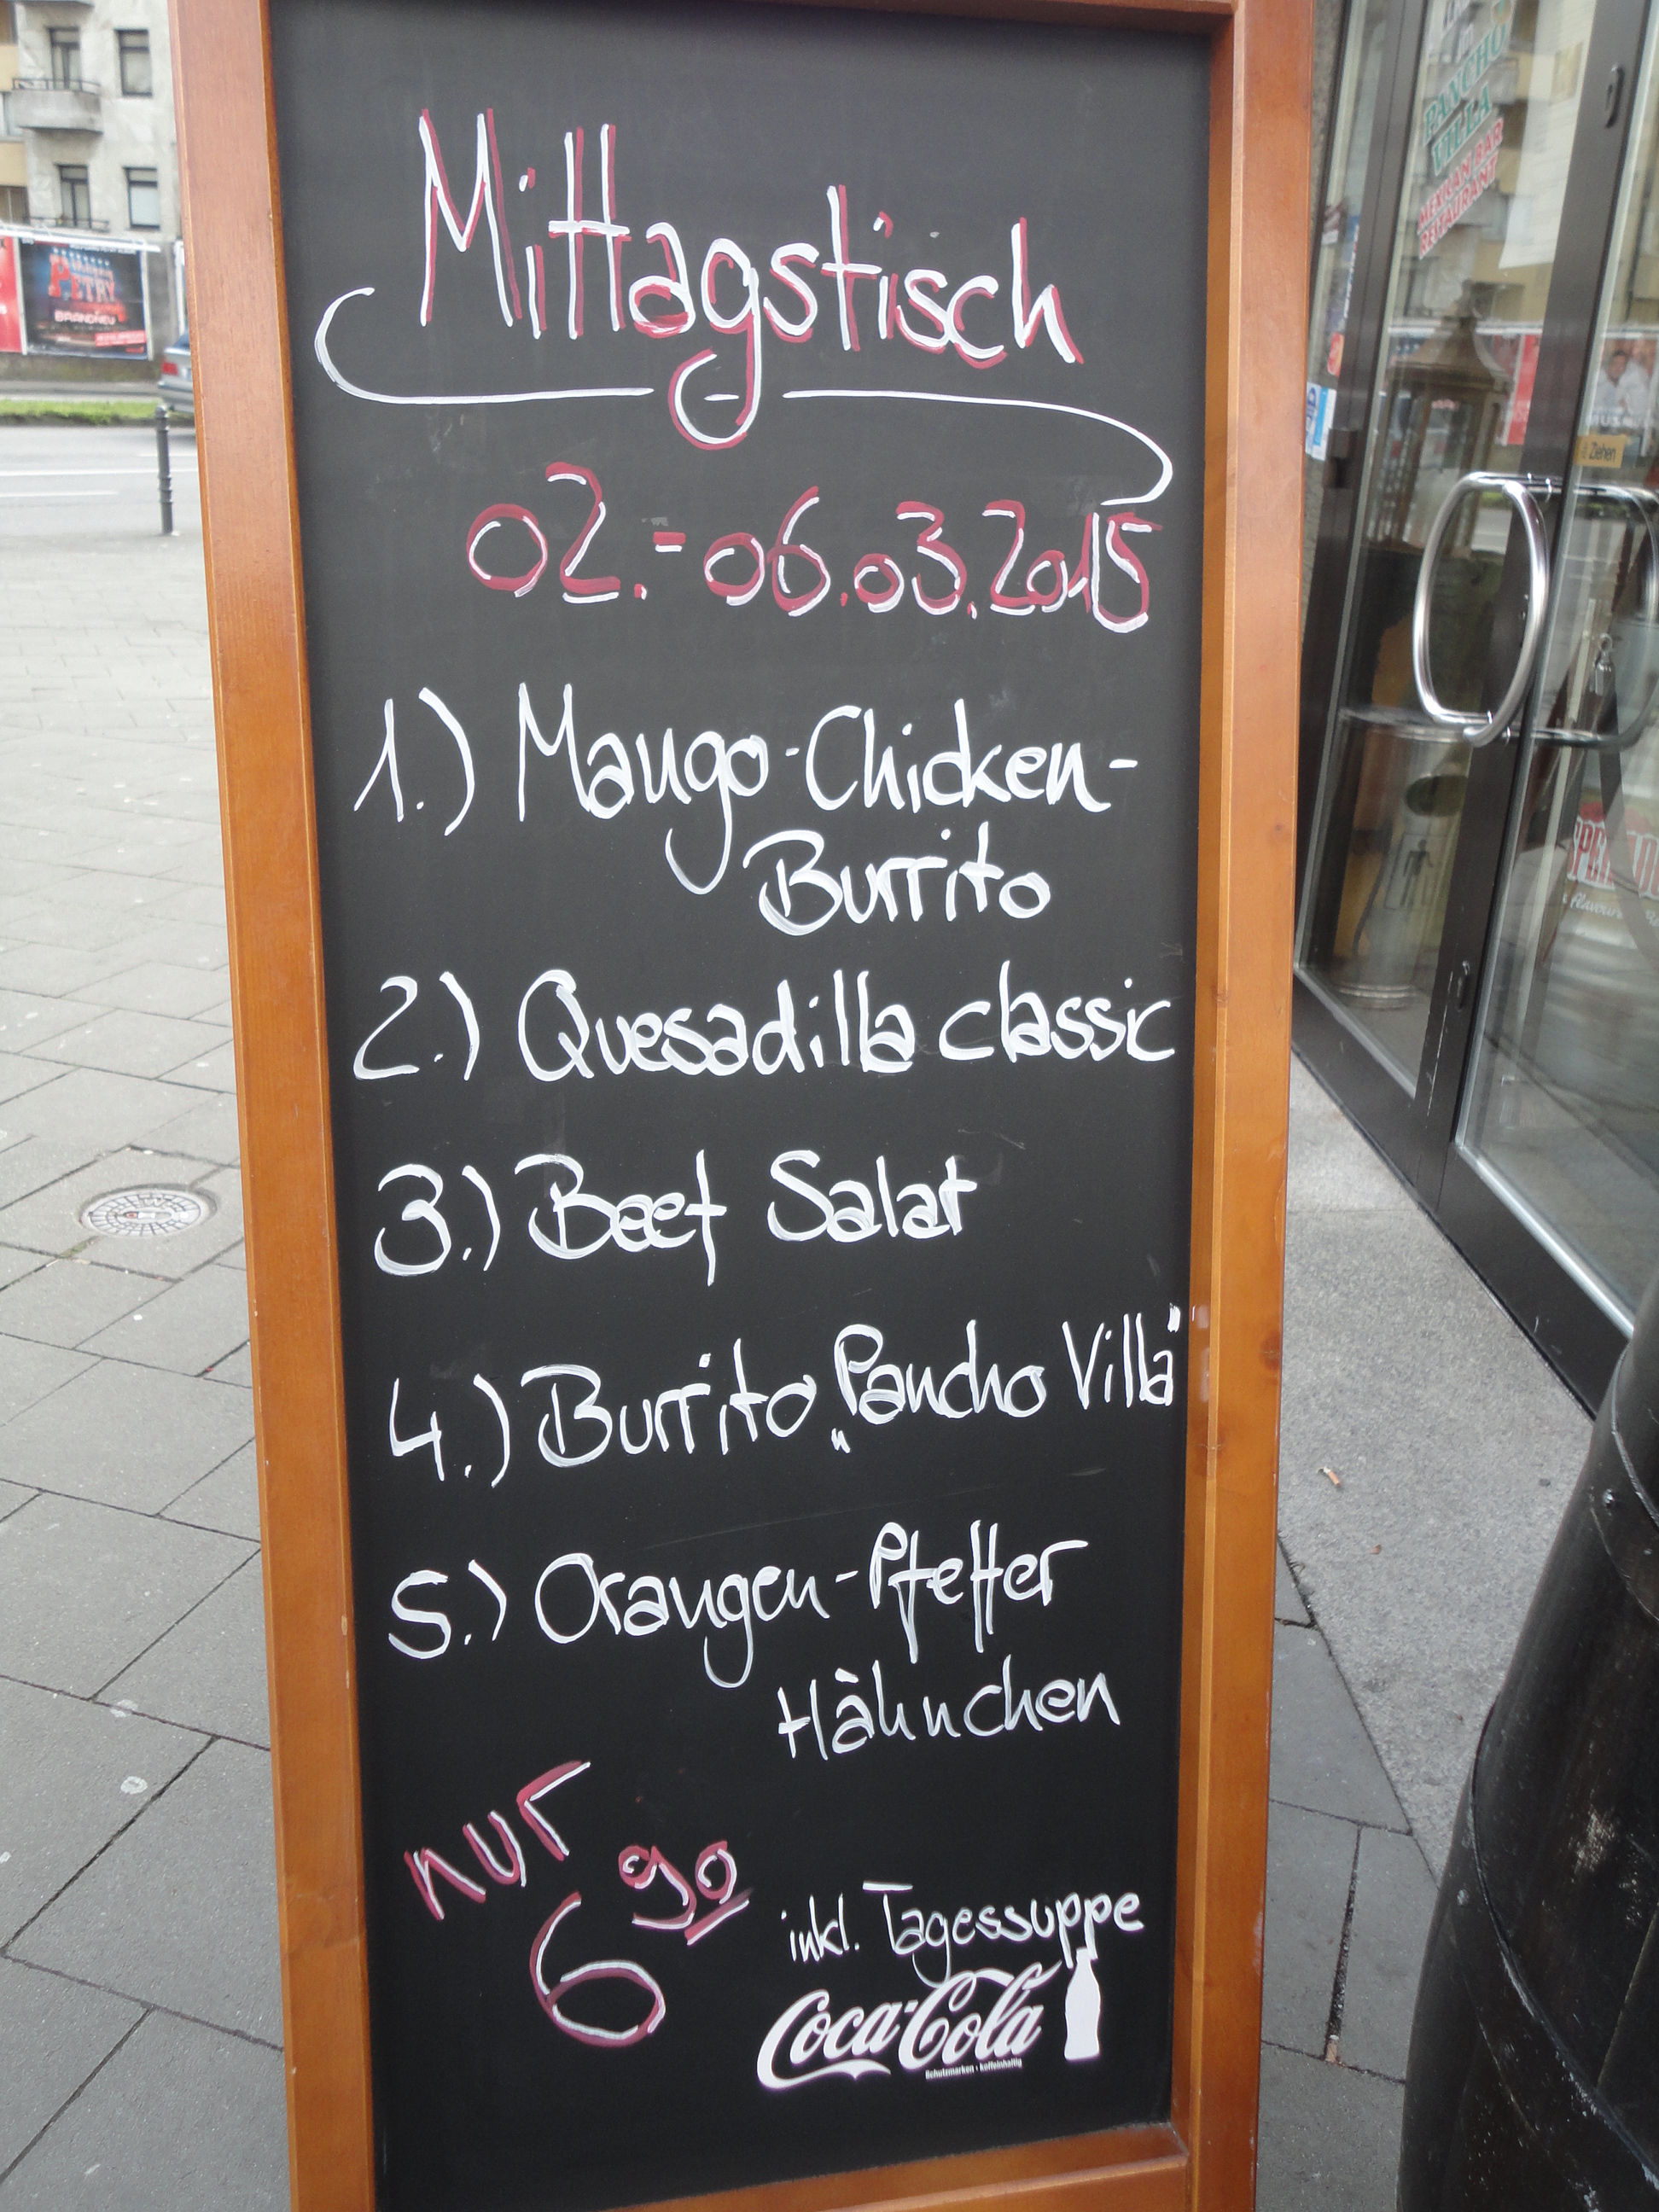 Mittagstisch
02.-06.03.2015
1.) Mango-Chicken-
Burrito
2.) Quesadilla classic
3.) Beef Salat
4.) Burrito „Pancho Villa"
5.) Orangen-Pfeffer
Hähnchen
nur
6 90
inkl. Tagessuppe
Coca-Cola
Schutzmarken • koffeinhaltig
PANCHO
VILLA
MEXICAN BAR
RESTAURANT
Ziehen
PETRY
BRANDNEU